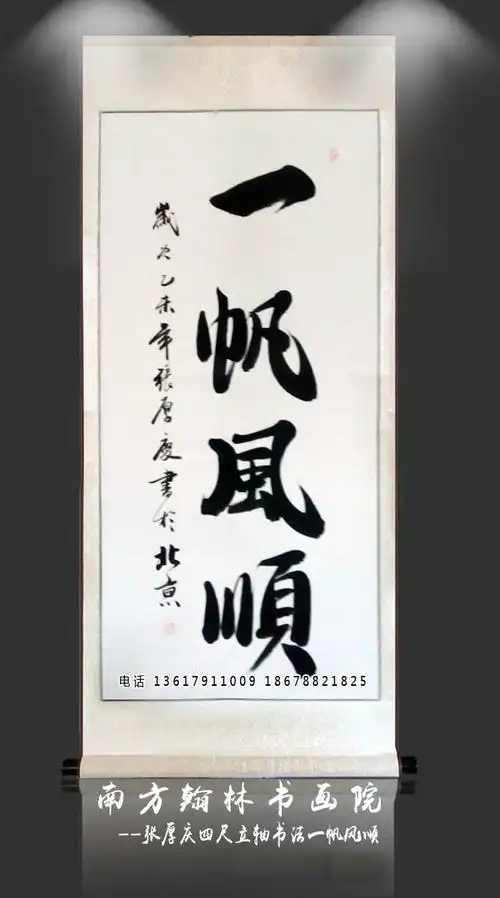 一帆風順
歲次乙未年張厚慶書於北京
电话 13617911009 18678821825
南方翰林书画院
--张厚庆四尺立轴书法一帆风顺